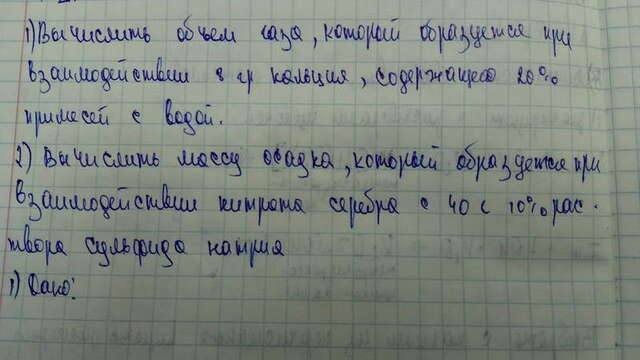 1) Вычислить объем газа, который образуется при
взаимодействии 8 гр кальция, содержащего 20%
примесей с водой.
2) Вычислить массу осадка, который образуется при
взаимодействии нитрата серебра с 40 г 10% рас-
твора сульфида натрия
1) Дано: